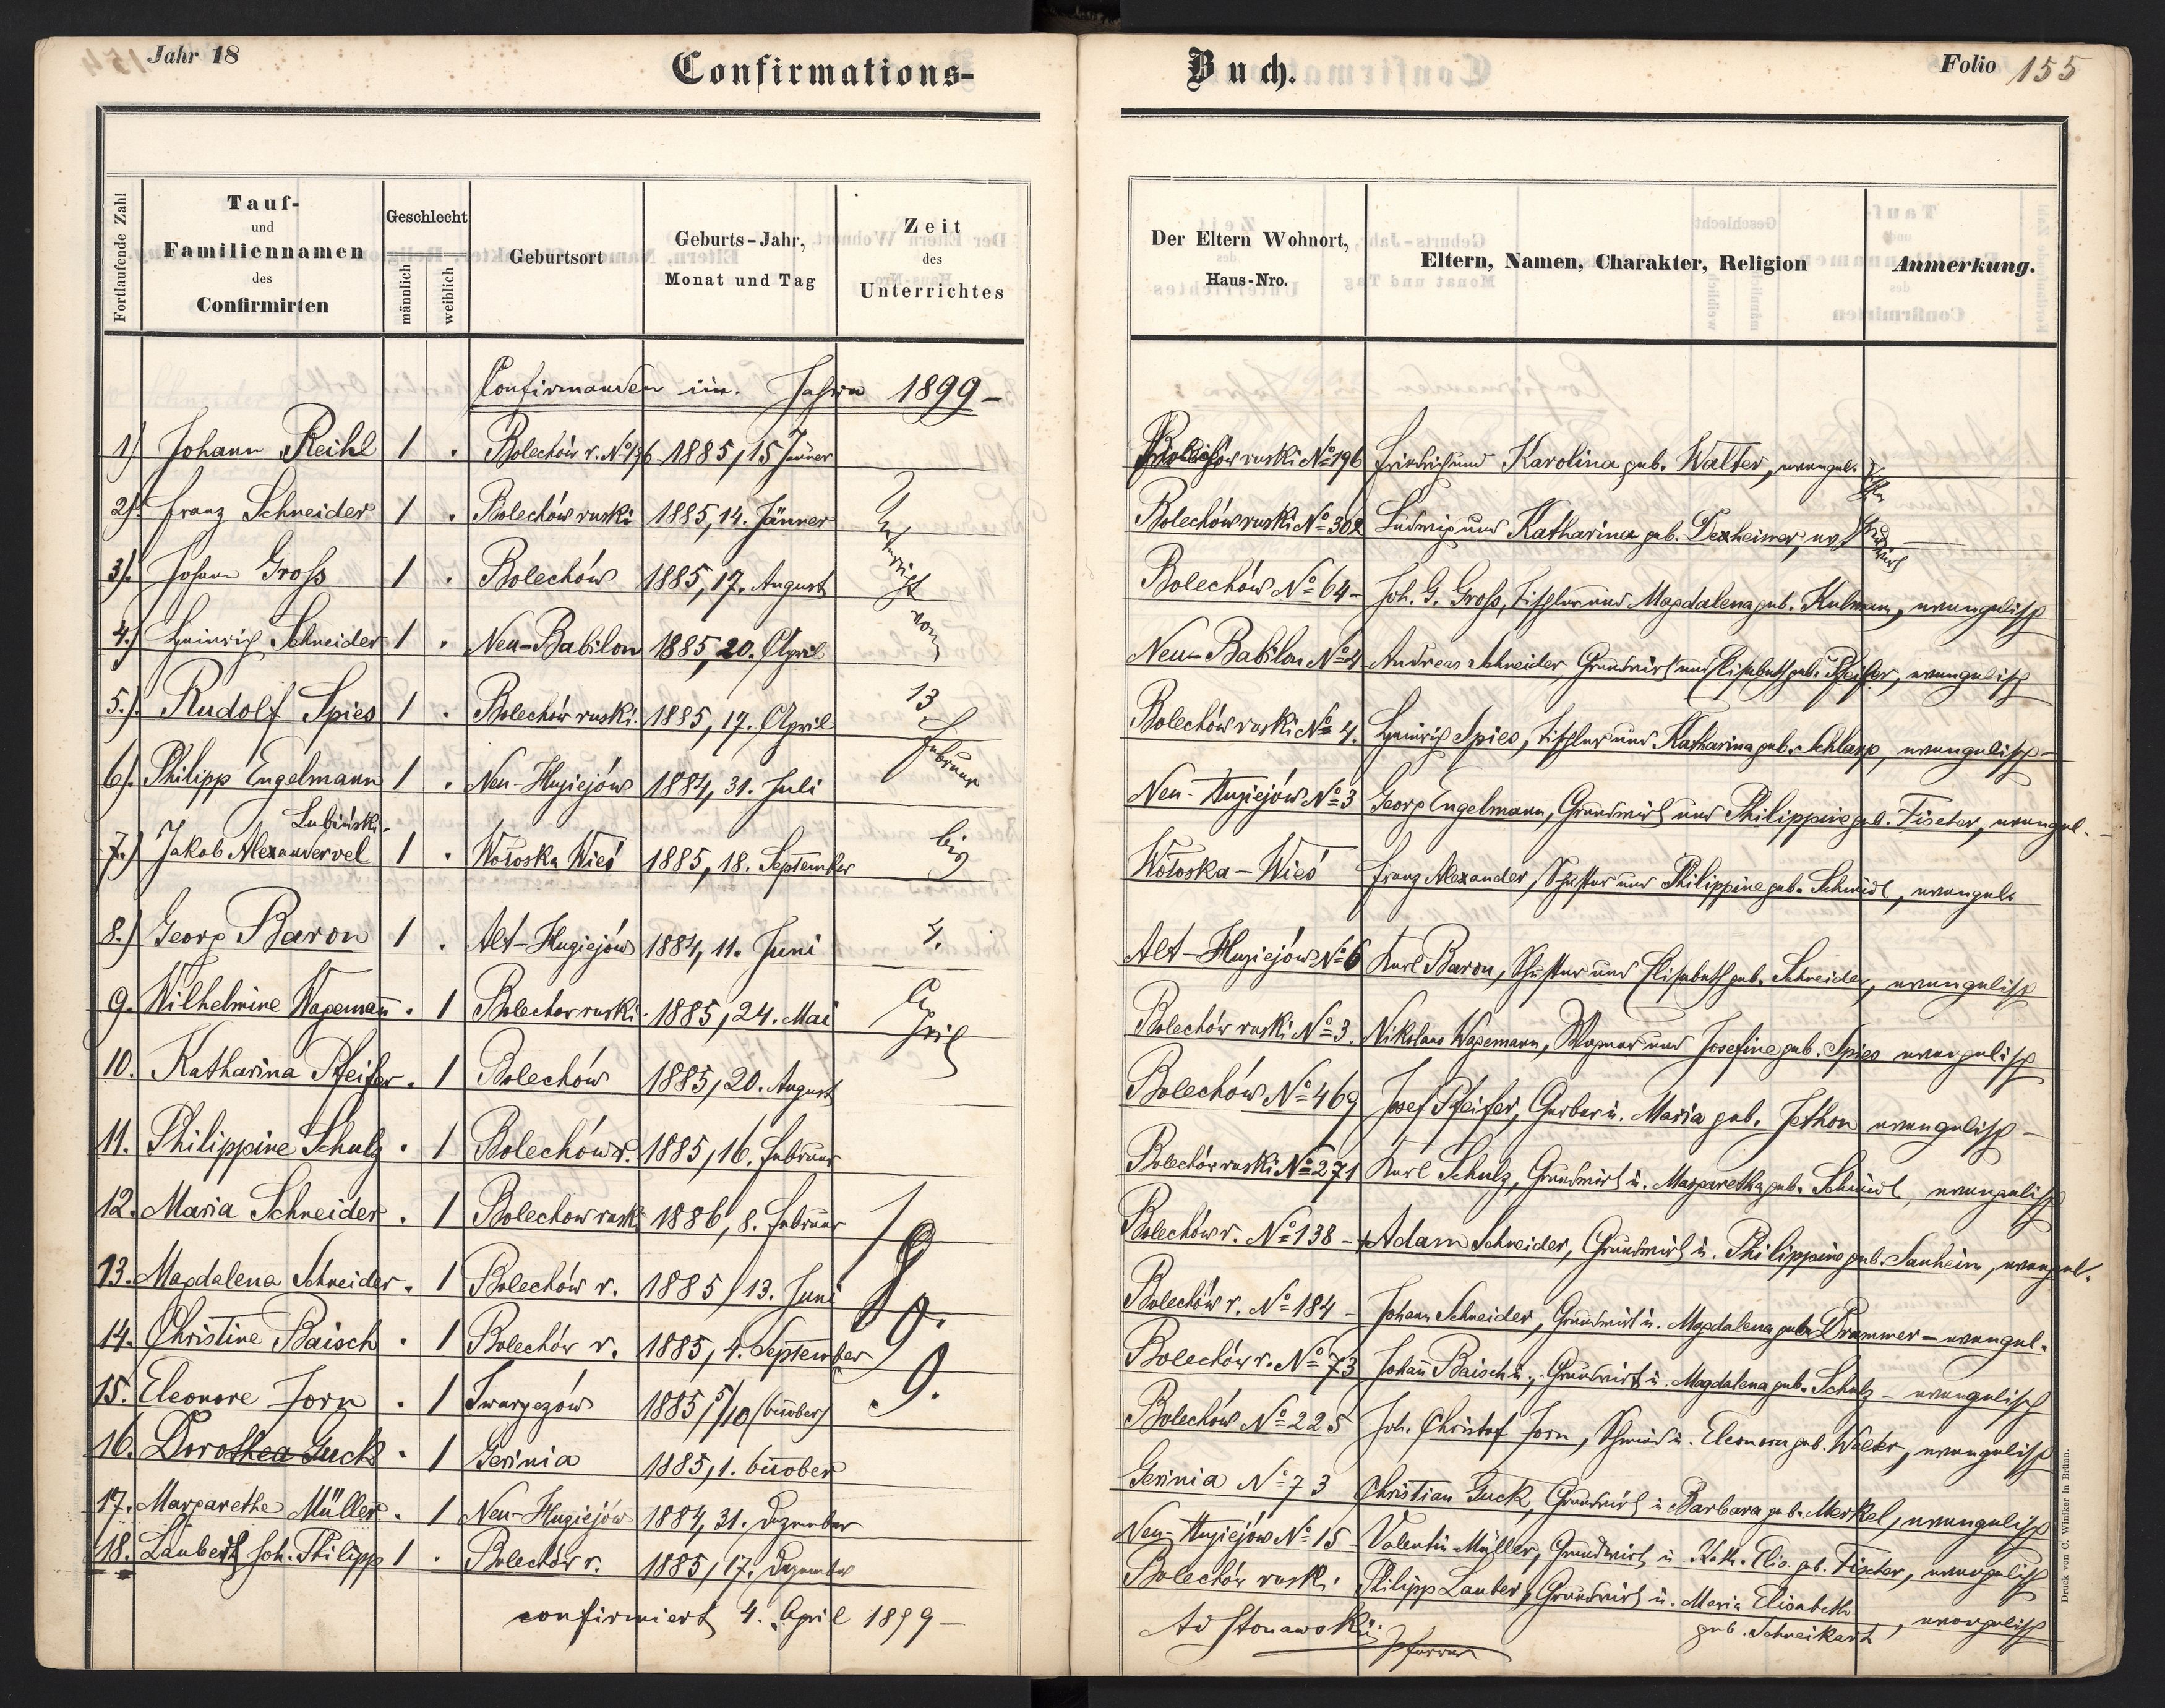 Jahr 18
Confirmations-
Fortlaufende Zahl
Tauf-
und
Familiennamen
des
Confirmirten
Geschlecht
männlich
weiblich
Geburtsort
Geburts-Jahr,
Monat und Tag
Zeit
des
Unterrichtes
Confirmanden im Jahre 1899-
1) Johann Reihl 1 . Bolechów r. No 196 1885, 15 Jänner
2) Franz Schneider 1 . Bolechów ruski 1885, 14. Jänner
3). Johann Gross 1 . Bolechów 1885, 17. August
4.) Heinrich Schneider 1 . Neu-Babilon 1885, 20. April
5.) Rudolf Spies 1 . Bolechów ruski. 1885, 17. April
6). Philipp Engelmann 1 . Neu-Hugiejów 1884, 31. Juli
Lubiński
7.) Jakob Alexander vel 1 . Wołoska Wieś 1885, 18. September
8.) Georg Baron 1 . Alt-Hugiejów 1884, 11. Juni
9. Wilhelmine Wagemann . 1 Bolechow ruski 1885, 24. Mai
10. Katharina Pfeifer . 1 Bolechów 1885, 20. August
11. Philippine Schulz . 1 Bolechów r. 1885, 16. Februar
12. Maria Schneider . 1 Bolechow ruski 1886, 8. Februar
13. Magdalena Schneider . 1 Bolechów r. 1885, 13. Juni
14. Christine Baisch . 1 Bolechów r. 1885, 4. September
15. Eleonore Jorn . 1 1885 5/10 (October)
16. Dorothea Guck . 1 Gerinia 1885, 1. October
17. Margarethe Müller . 1 Neu-Hugiejów 1884, 31. Dezember
18. Lauber Joh. Philipp 1 . Bolechów r. 1885, 17. Dezember
confirmiert 4. April 1899-
Unterricht
vom
13
Februar
bis
4.
April
1
8
9.
9.
Buch.
Folio 155
Der Eltern Wohnort,
Haus-Nro.
Eltern, Namen, Charakter, Religion
Anmerkung.
Bolechów ruski No 196 Friedrich und Karolina geb. Walter, evangel.
Bolechów ruski No 302 Ludwig und Katharina geb. Dexheimer, ev.
Bolechów No 64- Joh. G. Gross, Tischler und Magdalena geb. Kulmann, evangelisch
Neu-Babilon No 4 Andreas Schneider, Grundwirt und Elisabeth geb. Pfeifer, evangelisch
Bolechów ruski No 4. Heinrich Spies, Tischler und Katharina geb. Schlarp, evangelisch-
Neu-Hugiejów No 3 Georg Engelmann, Grundwirt und Philippine geb. Fischer, evangel.
Wołoska-Wieś Franz Alexander, Schuster und Philippine geb. Schmidt, evangel.
Alt-Hugiejów No 6 Karl Baron, Schuster und Elisabeth geb. Schneider, evangelisch
Bolechów ruski No 3. Nikolaus Wagemann, Wagner und Josefine geb. Spies evangelisch
Bolechów No 469 Josef Pfeifer, Gerber u. Maria geb. Jethon evangelisch-
Bolechów ruski No 271 Karl Schulz, Grundwirt u. Margaretha geb. Schmidt, evangelisch
Bolechów r. No 138- Adam Schneider, Grundwirt u. Philippine geb. Sauheim, evangel.
Bolechów r. No 184- Johann Schneider, Grundwirt u. Magdalena geb. Drummer- evangel.
Bolechów r. No 73 Johann Baisch, Grundwirt u. Magdalena geb. Schulz- evangelisch
Bolechów No 225 Joh. Christof Jorn, Schmied u. Eleonora geb. Walter, evangelisch
Gerinia No 73 Christian Guck, Grundwirt u Barbara geb. Merkel, evangelisch
Neu-Hugiejów No 15- Valentin Müller, Grundwirt u Kath. Elis. geb. Fischer, evangelisch
Bolechów ruski Philipp Lauber, Grundwirt u. Maria Elisabeth
geb. Schweikart, evangelisch
Pfarrer
Druck von C. Winiker in Brünn.